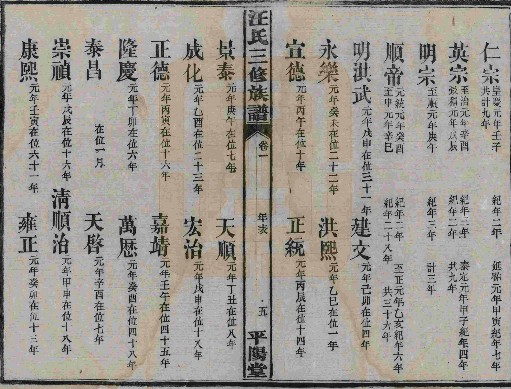 仁宗 皇慶元年壬子 紀年二年 延祐元年甲寅紀年七年
共計九年
英宗 至治元年辛酉 紀年三年 泰定元年甲子紀年四年
致和元年戊辰 紀年 共九年
明宗 至順元年庚午 紀年三年 計三年
順帝 元統元年癸酉 紀年二年 至正元年乙亥紀年六年
至元元年辛巳 紀年二十八年 共三十六年
明洪武 元年戊申在位三十一年 建文 元年己卯在位四年
永樂 元年癸未在位二十二年 洪熙 元年乙巳在位一年
宣德 元年丙午在位十年 正統 元年丙辰在位十四年
汪氏三修族譜 卷一 年表 五 平陽堂
景泰 元年庚午在位七年 天順 元年丁丑在位八年
成化 元年乙酉在位二十三年 宏治 元年戊申在位十八年
正德 元年丙寅在位十六年 嘉靖 元年壬午在位四十五年
隆慶 元年丁卯在位六年 萬厯 元年癸酉在位四十八年
泰昌 在位一月 天啓 元年辛酉在位七年
崇禎 元年戊辰在位十六年 清順治 元年甲申在位十八年
康熙 元年壬寅在位六十一年 雍正 元年癸卯在位十三年